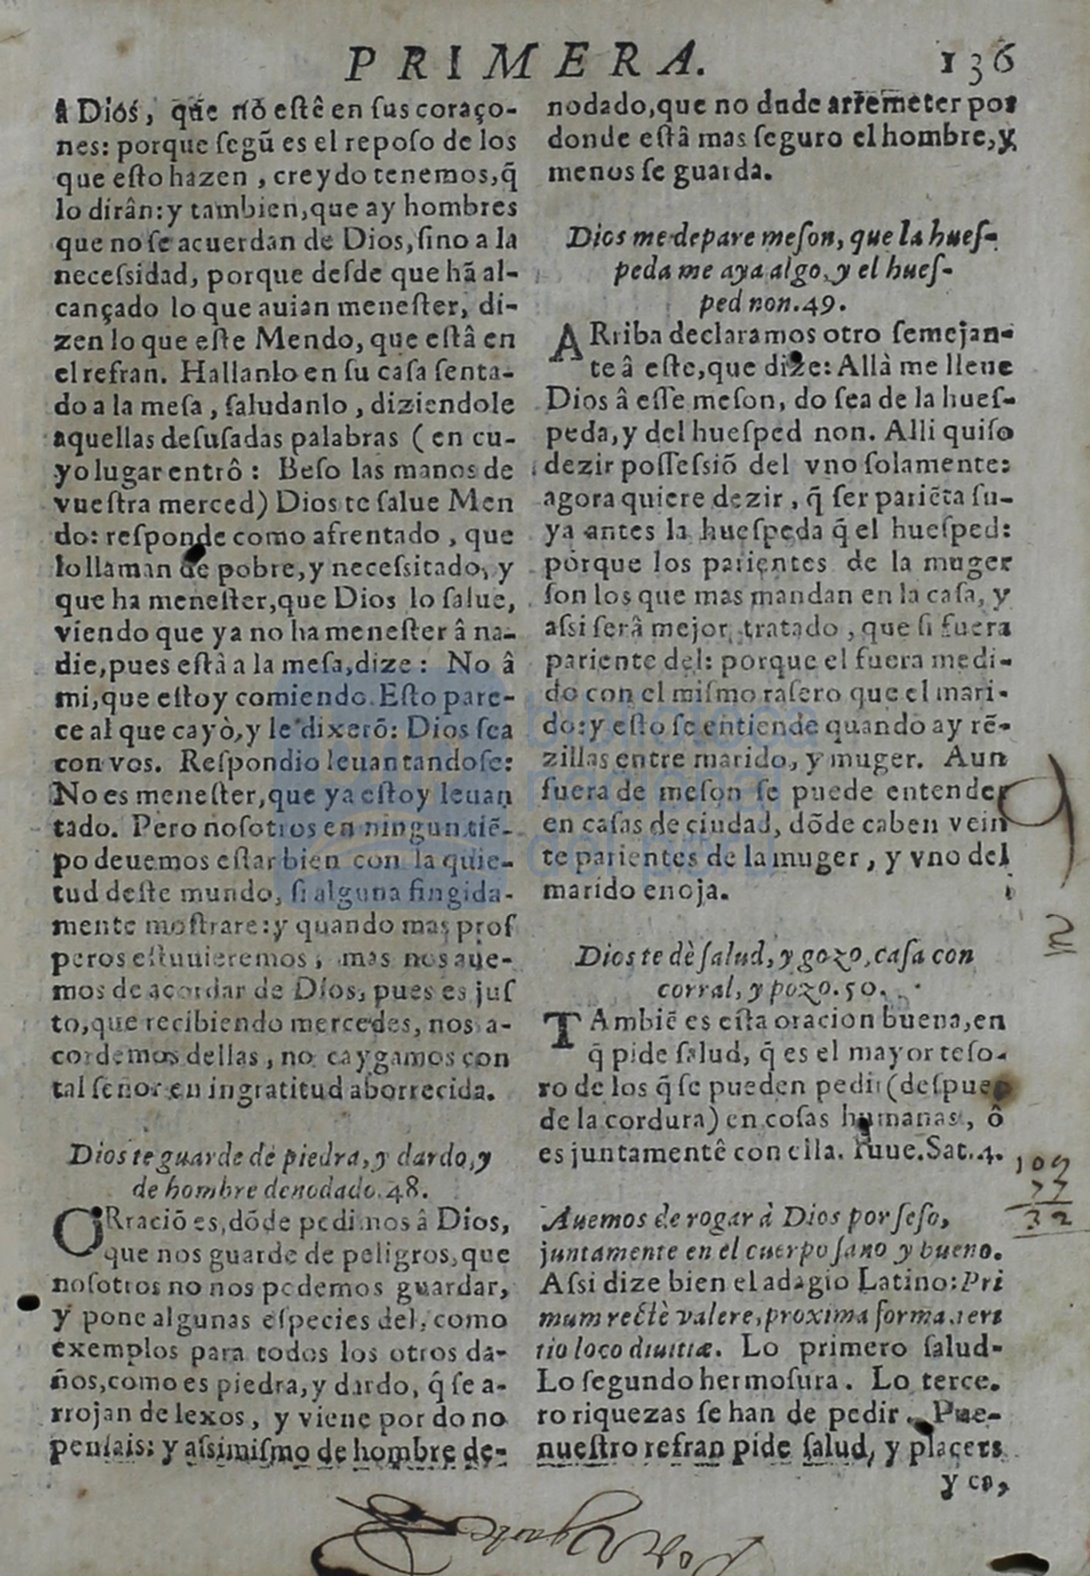 PRIMERA. 136
â Dios, que nõ estê en sus coraço-
nes: porque segũ es el reposo de los
que esto hazen, creydo tenemos, q̃
lo dirân: y tambien, que ay hombres
que no se acuerdan de Dios, sino a la
necessidad, porque desde que hã al-
cançado lo que auian menester, di-
zen lo que este Mendo, que estâ en
el refran. Hallanlo en su casa senta-
do a la mesa, saludanlo, diziendole
aquellas desusadas palabras (en cu-
yo lugar entrô: Beso las manos de
vuestra merced) Dios te salue Men
do: responde como afrentado, que
lo llaman de pobre, y necessitado, y
que ha menester, que Dios lo salue,
viendo que ya no ha menester â na-
die, pues està a la mesa, dize: No â
mi, que estoy comiendo. Esto pare-
ce al que cayò, y le dixerõ: Dios sea
con vos. Respondio leuantandose:
No es menester, que ya estoy leuan
tado. Pero nosotros en ningun tiẽ-
po deuemos estar bien con la quie-
tud deste mundo, si alguna fingida-
mente mostrare: y quando mas pros
peros estuuieremos, mas nos aue-
mos de acordar de Dios, pues es jus
to, que recibiendo mercedes, nos a-
cordemos dellas, no caygamos con
tal señor en ingratitud aborrecida.
Dios te guarde de piedra, y dardo, y
de hombre denodado. 48.
ORraciõ es, dõde pedimos â Dios,
que nos guarde de peligros, que
nosotros no nos podemos guardar,
y pone algunas especies del, como
exemplos para todos los otros da-
ños, como es piedra, y dardo, q̃ se a-
rrojan de lexos, y viene por do no
pensais: y assimismo de hombre de-
nodado, que no dude arremeter por
donde estâ mas seguro el hombre, y
menos se guarda.
Dios me depare meson, que la hues-
peda me aya algo, y el hues-
ped non. 49.
ARriba declaramos otro semejan-
te â este, que dize: Allà me lleue
Dios â esse meson, do sea de la hues-
peda, y del huesped non. Alli quiso
dezir possessiõ del vno solamente:
agora quiere dezir, q̃ ser pariẽta su-
ya antes la huespeda q̃ el huesped:
porque los parientes de la muger
son los que mas mandan en la casa, y
assi serâ mejor tratado, que si fuera
pariente del: porque el fuera medi-
do con el mismo rasero que el mari-
do: y esto se entiende quando ay rẽ-
zillas entre marido, y muger. Aun
fuera de meson se puede entender
en casas de ciudad, dõde caben vein
te parientes de la muger, y vno del
marido enoja.
Dios te dè salud, y gozo, casa con
corral, y pozo. 50.
TAmbiẽ es esta oracion buena, en
q̃ pide salud, q̃ es el mayor teso-
ro de los q̃ se pueden pedir (despues
de la cordura) en cosas humanas, ô
es juntamentê con ella. Iuue. Sat. 4.
109
77
32
Auemos de rogar à Dios por seso,
juntamente en el cuerpo sano y bueno.
Assi dize bien el adagio Latino: Pri
mum rectè valere, proxima forma, ter
tio loco diuitiæ. Lo primero salud-
Lo segundo hermosura. Lo terce.
ro riquezas se han de pedir. Pue-
nuestro refran pide salud, y placers
y ca,